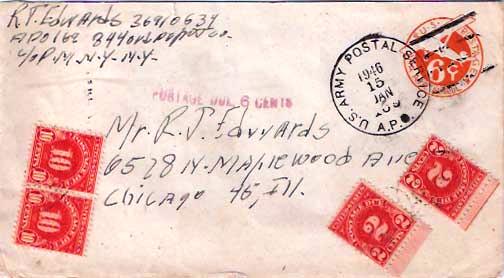 R.T. Edwards 36910637
APO 162 344 Ord Depot Co
c/o P.M. N.Y. N.Y.
U.S. ARMY POSTAL SERVICE
1946
15
JAN
A.P.O.
U.S.
6¢
POSTAGE DUE 6 CENTS
Mr. R.T. Edwards
6528 N. Maplewood Ave
Chicago 45, Ill.
10
10
2
2